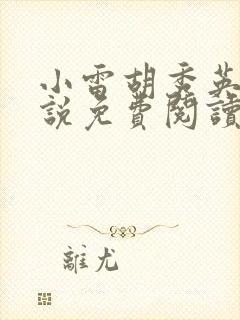 小雷胡秀英
說免費閱讀
離尤